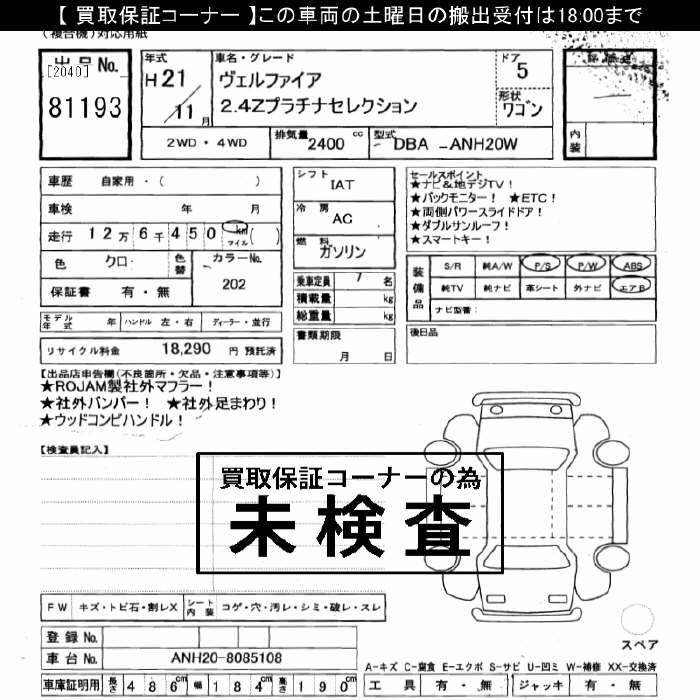 【 買取保証コーナー 】この車両の土曜日の搬出受付は18:00まで
(複合機)対応用紙
出品No. [2040] 81193
年式 H 21 / 11 月
車名・グレード ヴェルファイア 2.4Zプラチナセレクション
ドア 5
形状 ワゴン
評価点
内装
2WD・4WD 排気量 2400 cc 型式 DBA -ANH20W
車歴 自家用・( )
車検 年 月
走行 12万6千450 km マイル ( )
色 クロ 色替 カラーNo. 202
保証書 有・無
モデル年式 年 ハンドル 左・右 ディーラー・並行
リサイクル料金 18,290 円 預託済
シフト IAT
冷房 AC
燃料 ガソリン
乗車定員 7 名
積載量 kg
総重量 kg
書類期限 月 日
セールスポイント
★ナビ&地デジTV!
★バックモニター! ★ETC!
★両側パワースライドドア!
★ダブルサンルーフ!
★スマートキー!
装備品 S/R 純A/W P/S P/W ABS
純TV 純ナビ 革シート 外ナビ エアB
ナビ型番:
後日品
【出品店申告欄(不良箇所・欠品・注意事項等)】
★ROJAM製社外マフラー!
★社外バンパー! ★社外足まわり!
★ウッドコンビハンドル!
【検査員記入】
買取保証コーナーの為
未検査
FW キズ・トビ石・割レX シート内装 コゲ・穴・汚レ・シミ・破レ・スレ
登録No.
車台No. ANH20-8085108
車庫証明用 長さ 486cm 幅 184cm 高さ 190cm
スペア
A-キズ C-腐食 E-エクボ S-サビ U-凹ミ W-補修 XX-交換済
工具 有・無 ジャッキ 有・無